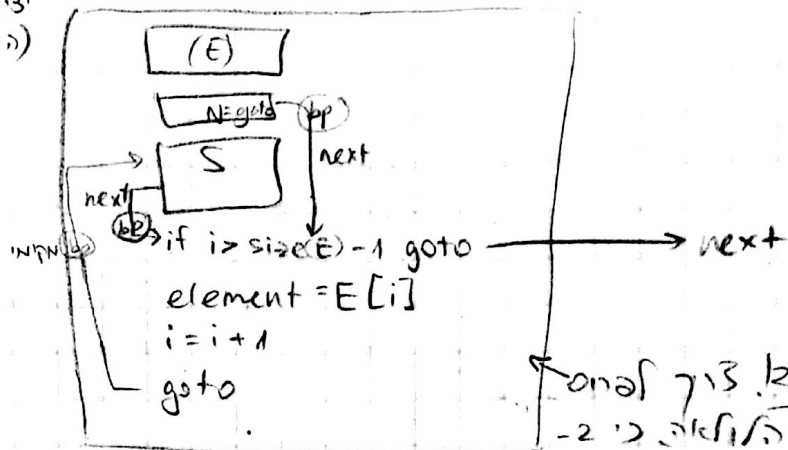 (E)
N=goto bp
next
S
next
bp if i > size(E)-1 goto next
element = E[i]
i = i + 1
goto
צריך לפרוס
הלולאה כי ב-